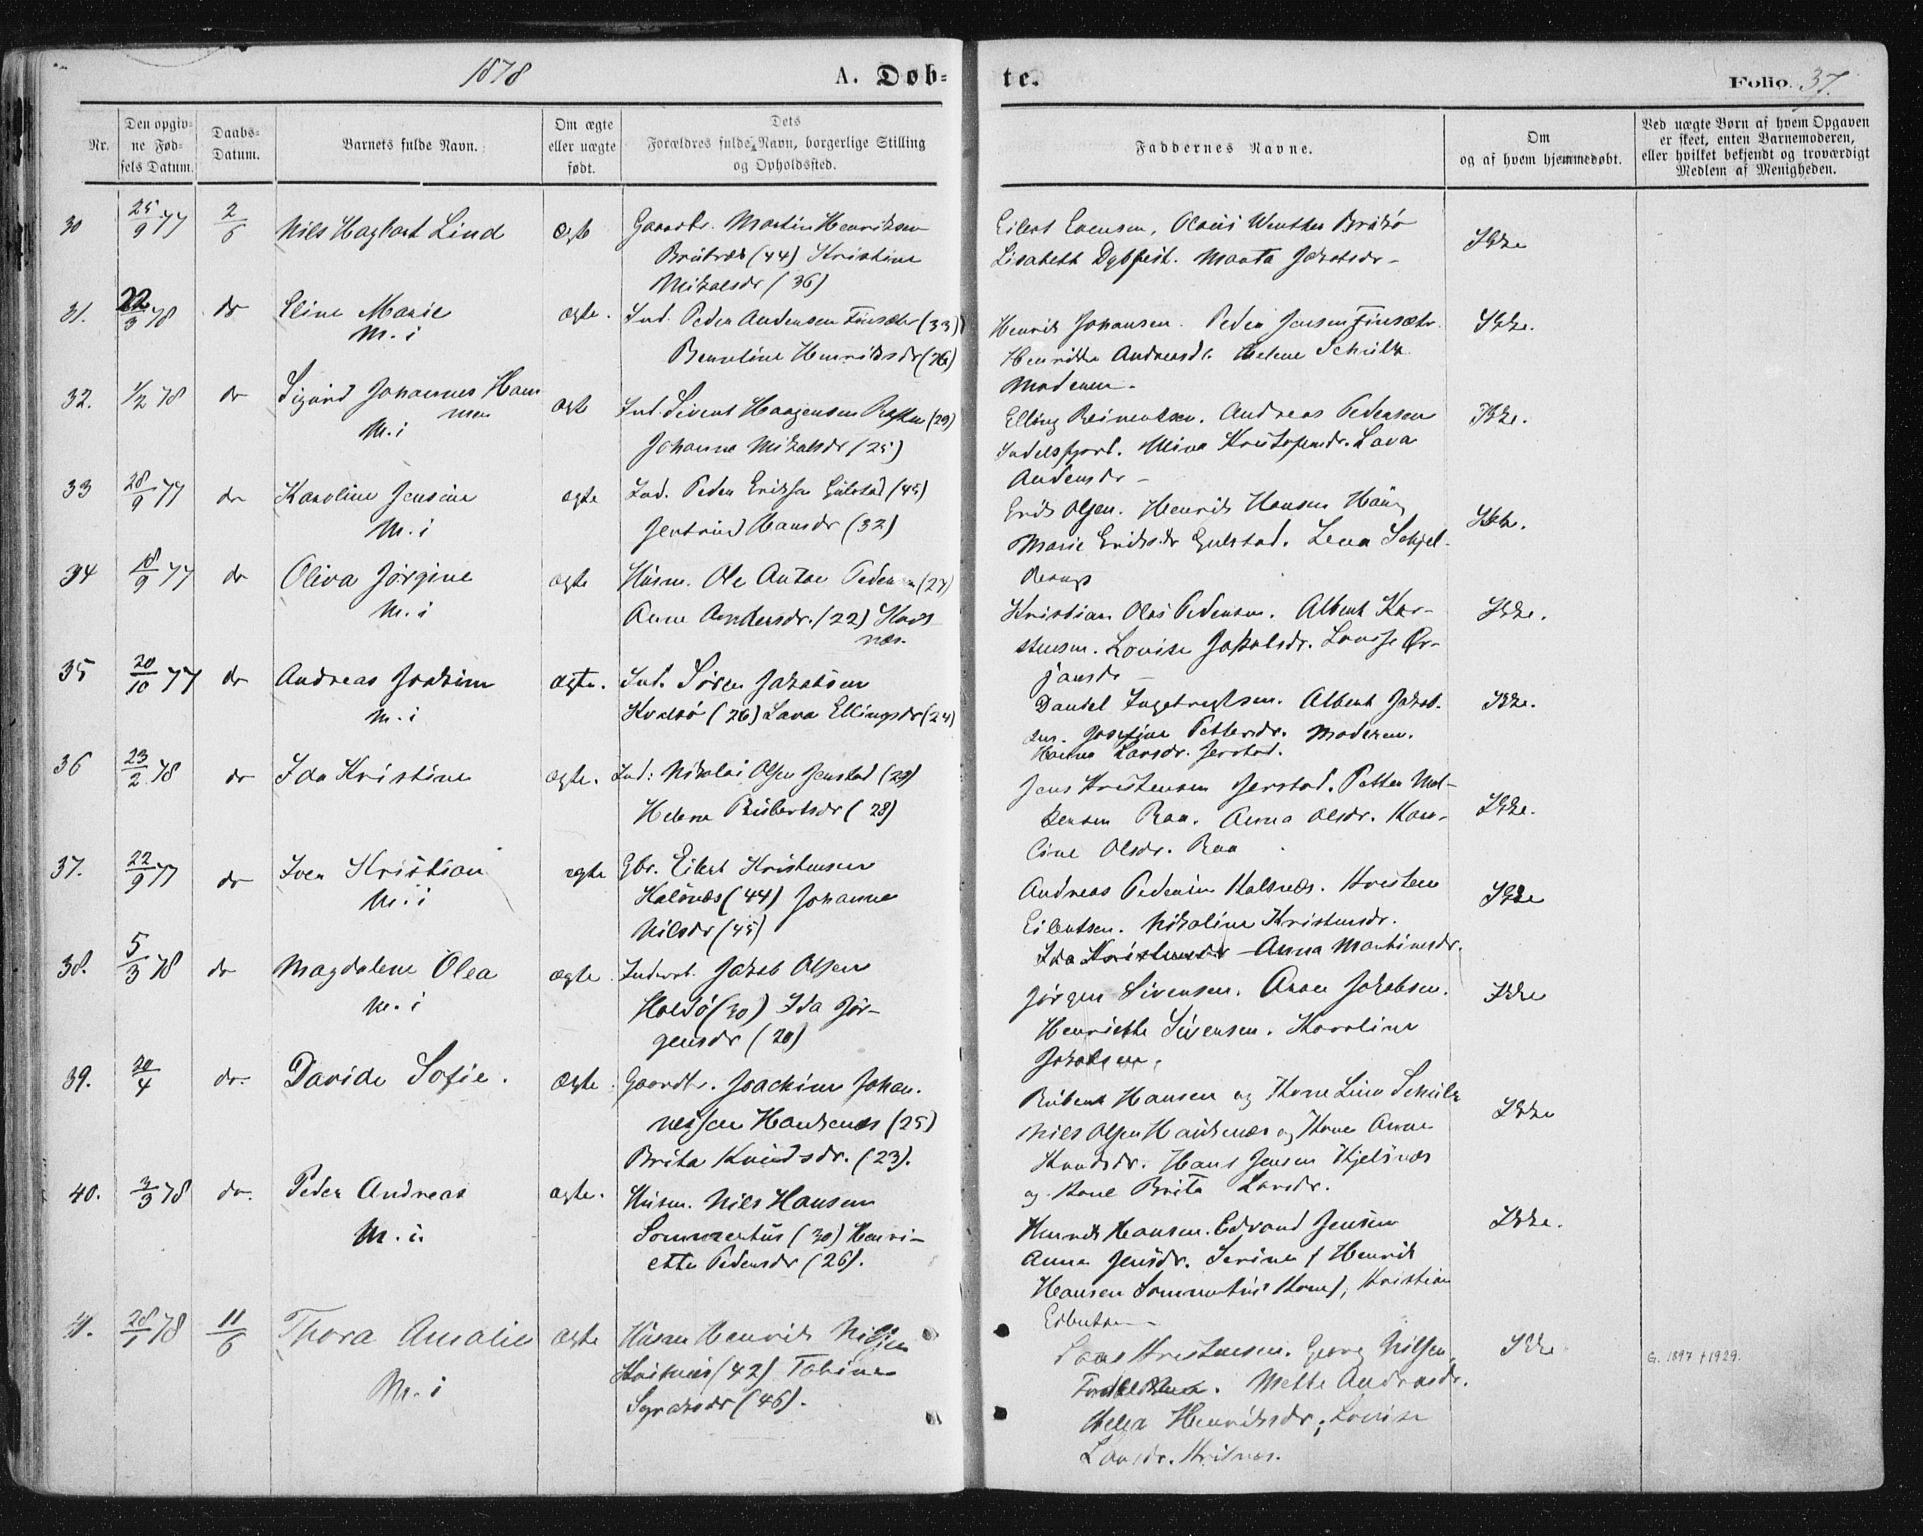 1878
A. Døb-
te.
Folio. 37.
Nr.
Den opgiv-
ne Fød-
sels Datum.
Daabs-
Datum.
Barnets fulde Navn.
Om ægte
eller uægte
født.
Dets
Forældres fulde Navn, borgerlige Stilling
og Opholdssted.
Faddernes Navne.
Om
og af hvem hjemmedøbt.
Ved uægte Børn af hvem Opgaven
er skeet, enten Barnemoderen,
eller hvilket bekjendt og troværdigt
Medlem af Menigheden.
30 25/9 77 2/6 Nils Hagbart Lind Ægte Gaardbr. Martin Henriksen
(44) Kristine
Nikolsdr (36)
Eilert Evensen, Olaus
Lisabeth Dybfest. Marta Jakobsdr
Ikke
31. 22/3 78 do Eline Marie ægte. Ind. Peder Andersen Finsæter (33)
M. i
Berntine Henriksdr (26)
Henrik Johansen. Peder Jensen Finsætr.
Henrikka Andreasdr. Helene Schultz
Moderen
Ikke.
32. 1/2 78 do Sigurd Johannes Han
sen
M. i
ægte Ind. Sivert Haagensen (29)
Johanna Nikolsdr (25)
Elling Reinertsen. Andreas Pedersen
Indelsfjord. Mina Kristofersdr. Lava
Andersdr
Ikke.
33 28/9 77 do Karoline Jensine ægte Ind. Peder Eriksen Gulstad (45)
M. i
Jertrud Hansdr (32)
Erik Olsen. Henrik Hansen
Marie Eriksdr Gulstad. Lena Schjel-
derup
Ikke.
34 18/9 77 do Oliva Jørgine ægte Husm. Ole Anton Peder
M. i
Anne Andersdr. (22)
næs.
Kristian Olai Pedersen. Albert Kar-
stensen. Lovise Jakobsdr. Lovise Ør-
jansdr
Ikke.
35 20/10 77 do Andreas Joakim ægte. Ind. Søren Jakobsen
M. i
Kvalø (26) Lava Ellingsdr (24)
Daniel Ingebregtsen. Albert Jakob-
sen. Josefine Pettersdr. Moderen.
Hanna Larsdr. Jerstad.
Ikke.
36 23/2 78 do Ida Kristine ægte. Ind: Nikolai Olsen Jerstad (29)
Helene Rubertsdr (28)
Jens Kristensen Jerstad. Petter Mel-
kersen Raa. Anna Olsdr. Karo-
line Olsdr. Raa
Ikke.
37. 22/9 77 do Iver Kristian ægte Gbr. Eilert Kristensen
M. i
Kalsnæs (44) Johanna
Nilsdr (45)
Andreas Pedersen Kalsnæs. Kristen
Eilertsen. Nikoline Kristensdr.
Ida Kristensdr Anna Martinsdr.
Ikke
38. 5/3 78 do Magdalene Olea ægte. Inderst. Jakob Olsen
M. i
Kalsø (30) Ida Jør-
gensdr (20)
Jørgen Sivensen. Anna Jakobsen.
Henriette Sivensen. Karoline
Jakobsen.
Ikke
39. 20/4 do. Davide Sofie. Ægte. Gaardbr. Joachim Johan-
nessen Haukenes (25)
Brita Knudsdr. (23).
Rubert Hansen og Kone Lina Schultz
Nils Olsen Haukenæs og Kone Anne
Knudsdr. Hans Jensen Kjelsnæs
og Kone Brita Larsdr.
Ikke
40. 3/3 78 do. Peder Andreas ægte. Husm. Nils Hansen
M. i.
Sommertus (30) Henri-
ette Pedersdr (26).
Henrik Hansen. Edvard Jensen
Anna Jensdr. Serine (Henrik
Hansen Sommertus Kone), Kristian
Ikke.
41. 28/1 78 11/6 Thora Amalie ægte Husm Henrik Nilsen
M. i
(42) Tobine
(46).
Kristensen. Georg Nilsen,
Mette Andreasdr.
Helga Henriksdr, Lovise
Larsdr.
Ikke
G. 1897 † 1929.